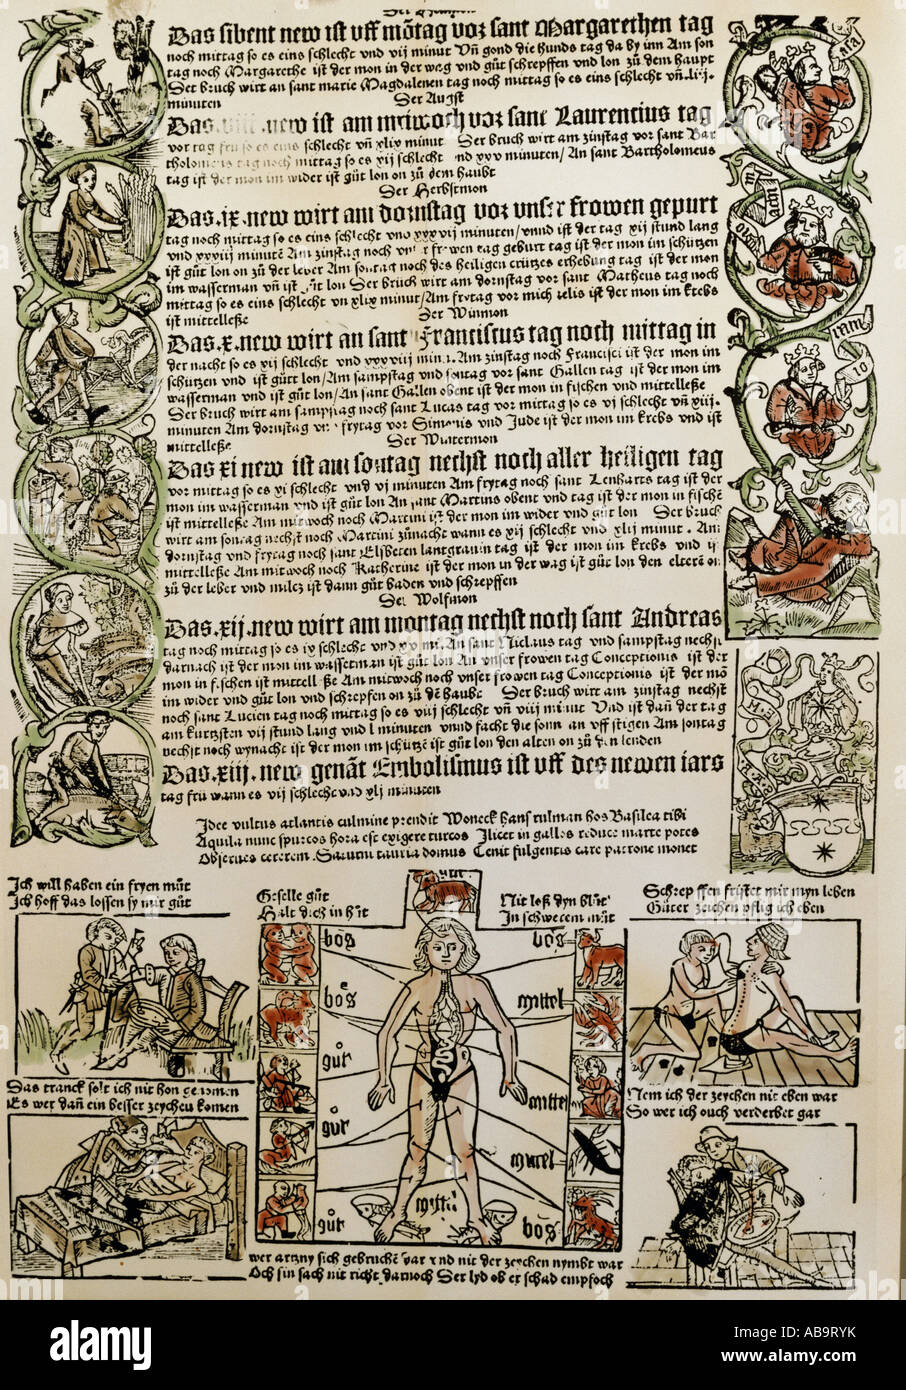 Das sibent new ist vff mōtag vor sant Margarethen tag
noch mittag so es eins schlecht vnd vij minut Vñ gond die hunds tag da by inn Am son
tag noch Margarethe ist der mon in der wag vnd gūt schrepffen vnd lon zū dem haupt
Der bruch wirt an sant marie Magdalenen tag noch mittag so es eins schlecht vñ
minuten
Der Augst
Das viij new ist am mitwoch vor sant Laurentius tag
vor tag fru so es eins schlecht vñ xlix minut Der bruch wirt am zinstag vor sant Bar
tholomeus tag noch mittag so es xij schlecht vnd xxv minuten / An sant Bartholomeus
tag ist der mon im wider ist gūt lon on zū dem haubt
Der Herbstmon
Das .ix. new wirt am dornstag vor vnser frowen gepurt
tag noch mittag so es eins schlecht vnd xxxvij minuten / vnnd ist der tag xij stund lang
vnd xxxiij minutē Am zinstag noch vnser frowen tag geburt tag ist der mon im schützen
ist gūt lon on zū der leber Am sontag noch des heiligen crützes erhebung tag ist der mon
im wasserman vñ ist gūt lon Der brüch wirt am dornstag vor sant Matheus tag noch
mittag so es eins schlecht vñ xlix minut / Am frytag vor michahelis ist der mon im krebs
ist mittelleße
Der Winmon
Das .x. new wirt an sant Franciscus tag noch mittag in
der nacht so es xij schlecht vnd xxxviij minut. Am zinstag noch Francisci ist der mon im
schützen vnd ist gūtt lon / Am sampstag vnd sontag vor sant Gallen tag ist der mon im
wasserman vnd ist gūt lon / An sant Gallen obent ist der mon in fischen vnd mittelleße
Der bruch wirt am sampstag noch sant Lucas tag vor mittag so es vj schlecht vñ xiij.
minuten Am dornstag vnd frytag vor Simonis vnd Jude ist der mon im krebs vnd ist
mittelleße
Der Wintermon
Das xi new ist am sontag nechst noch aller heiligen tag
vor mittag so es xi schlecht vnd vj minuten Am frytag noch sant Lenharts tag ist der
mon im wasserman vnd ist gūt lon An sant Martins obent vnd tag ist der mon in fischē
ist mittelleße Am mitwoch noch Martini ist der mon im wider vnd gūt lon Der bruch
wirt am sontag nechst noch Martini zūnacht wann es xij schlecht vnd xlij minut. Am
dornstag vnd frytag noch sant Elsbeten lantgrauin tag ist der mon im krebs vnd ij
mittelleße Am mitwoch noch Katherine ist der mon in der wag ist gūt lon den elteren on
zū der leber vnd miltz ist dann gūt baden vnd schrepffen
Der Wolfmon
Das .xij. new wirt am montag nechst noch sant Andreas
tag noch mittag so es ix schlecht vnd xv mi. An sant Niclaus tag vnd sampstag nechst
darnach ist der mon im wasserman ist gūt lon An vnser frowen tag Conceptionis ist der
mon in fischen ist mittelleße Am mitwoch noch vnser frowen tag Conceptionis ist der mō
im wider vnd gūt lon vnd schrepfen on zū dē haube Der bruch wirt am zinstag nechst
noch sant Lucien tag noch mittag so es viij schlecht vñ viij minut Vnd ist dañ der tag
am kurtzsten vij stund lang vnd l minuten vnnd facht die sonn an vff stigen Am sontag
nechst noch wynacht ist der mon im schützē ist gūt lon den alten on zū den lenden
Das .xiij. new genāt Embolismus ist vff des newen iars
tag frū wann es vij schlecht vnd xlj minuten
Idee vultus atlantis culmine prendit Woneck hans tulman hos Basilea tibi
Aquila nunc spurcos hora est exigere turcos Ilicet in gallos reduce marte potes
Obsecues ceterem. Saturni tauria domus Cenit fulgentis care patrone monet
Ich will haben ein fryen mūt
Ich hoff das lossen sy mir gūt
Geselle gūt
Halt dich in hūt
Nit loß dyn blūt
In schwerem mūt
Schrepffen fristet mir myn leben
Gūter zeichen pflig ich eben
bōs
bōs
bōs
mittel
gūt
gūt
mittel
mittel
gūt
mittel
bōs
Das tranck solt ich nit hon genomen
Es wer dañ ein besser zeychen komen
Nem ich der zeychen nit eben war
So wer ich ouch verderbet gar
wer artzny sich gebruchē gar vnd nit der zeychen nymbt war
Och sin sach nit richt darnoch Der lyd ob er schad empfoch
alamy
alamy stock photo
AB9RYK
www.alamy.com